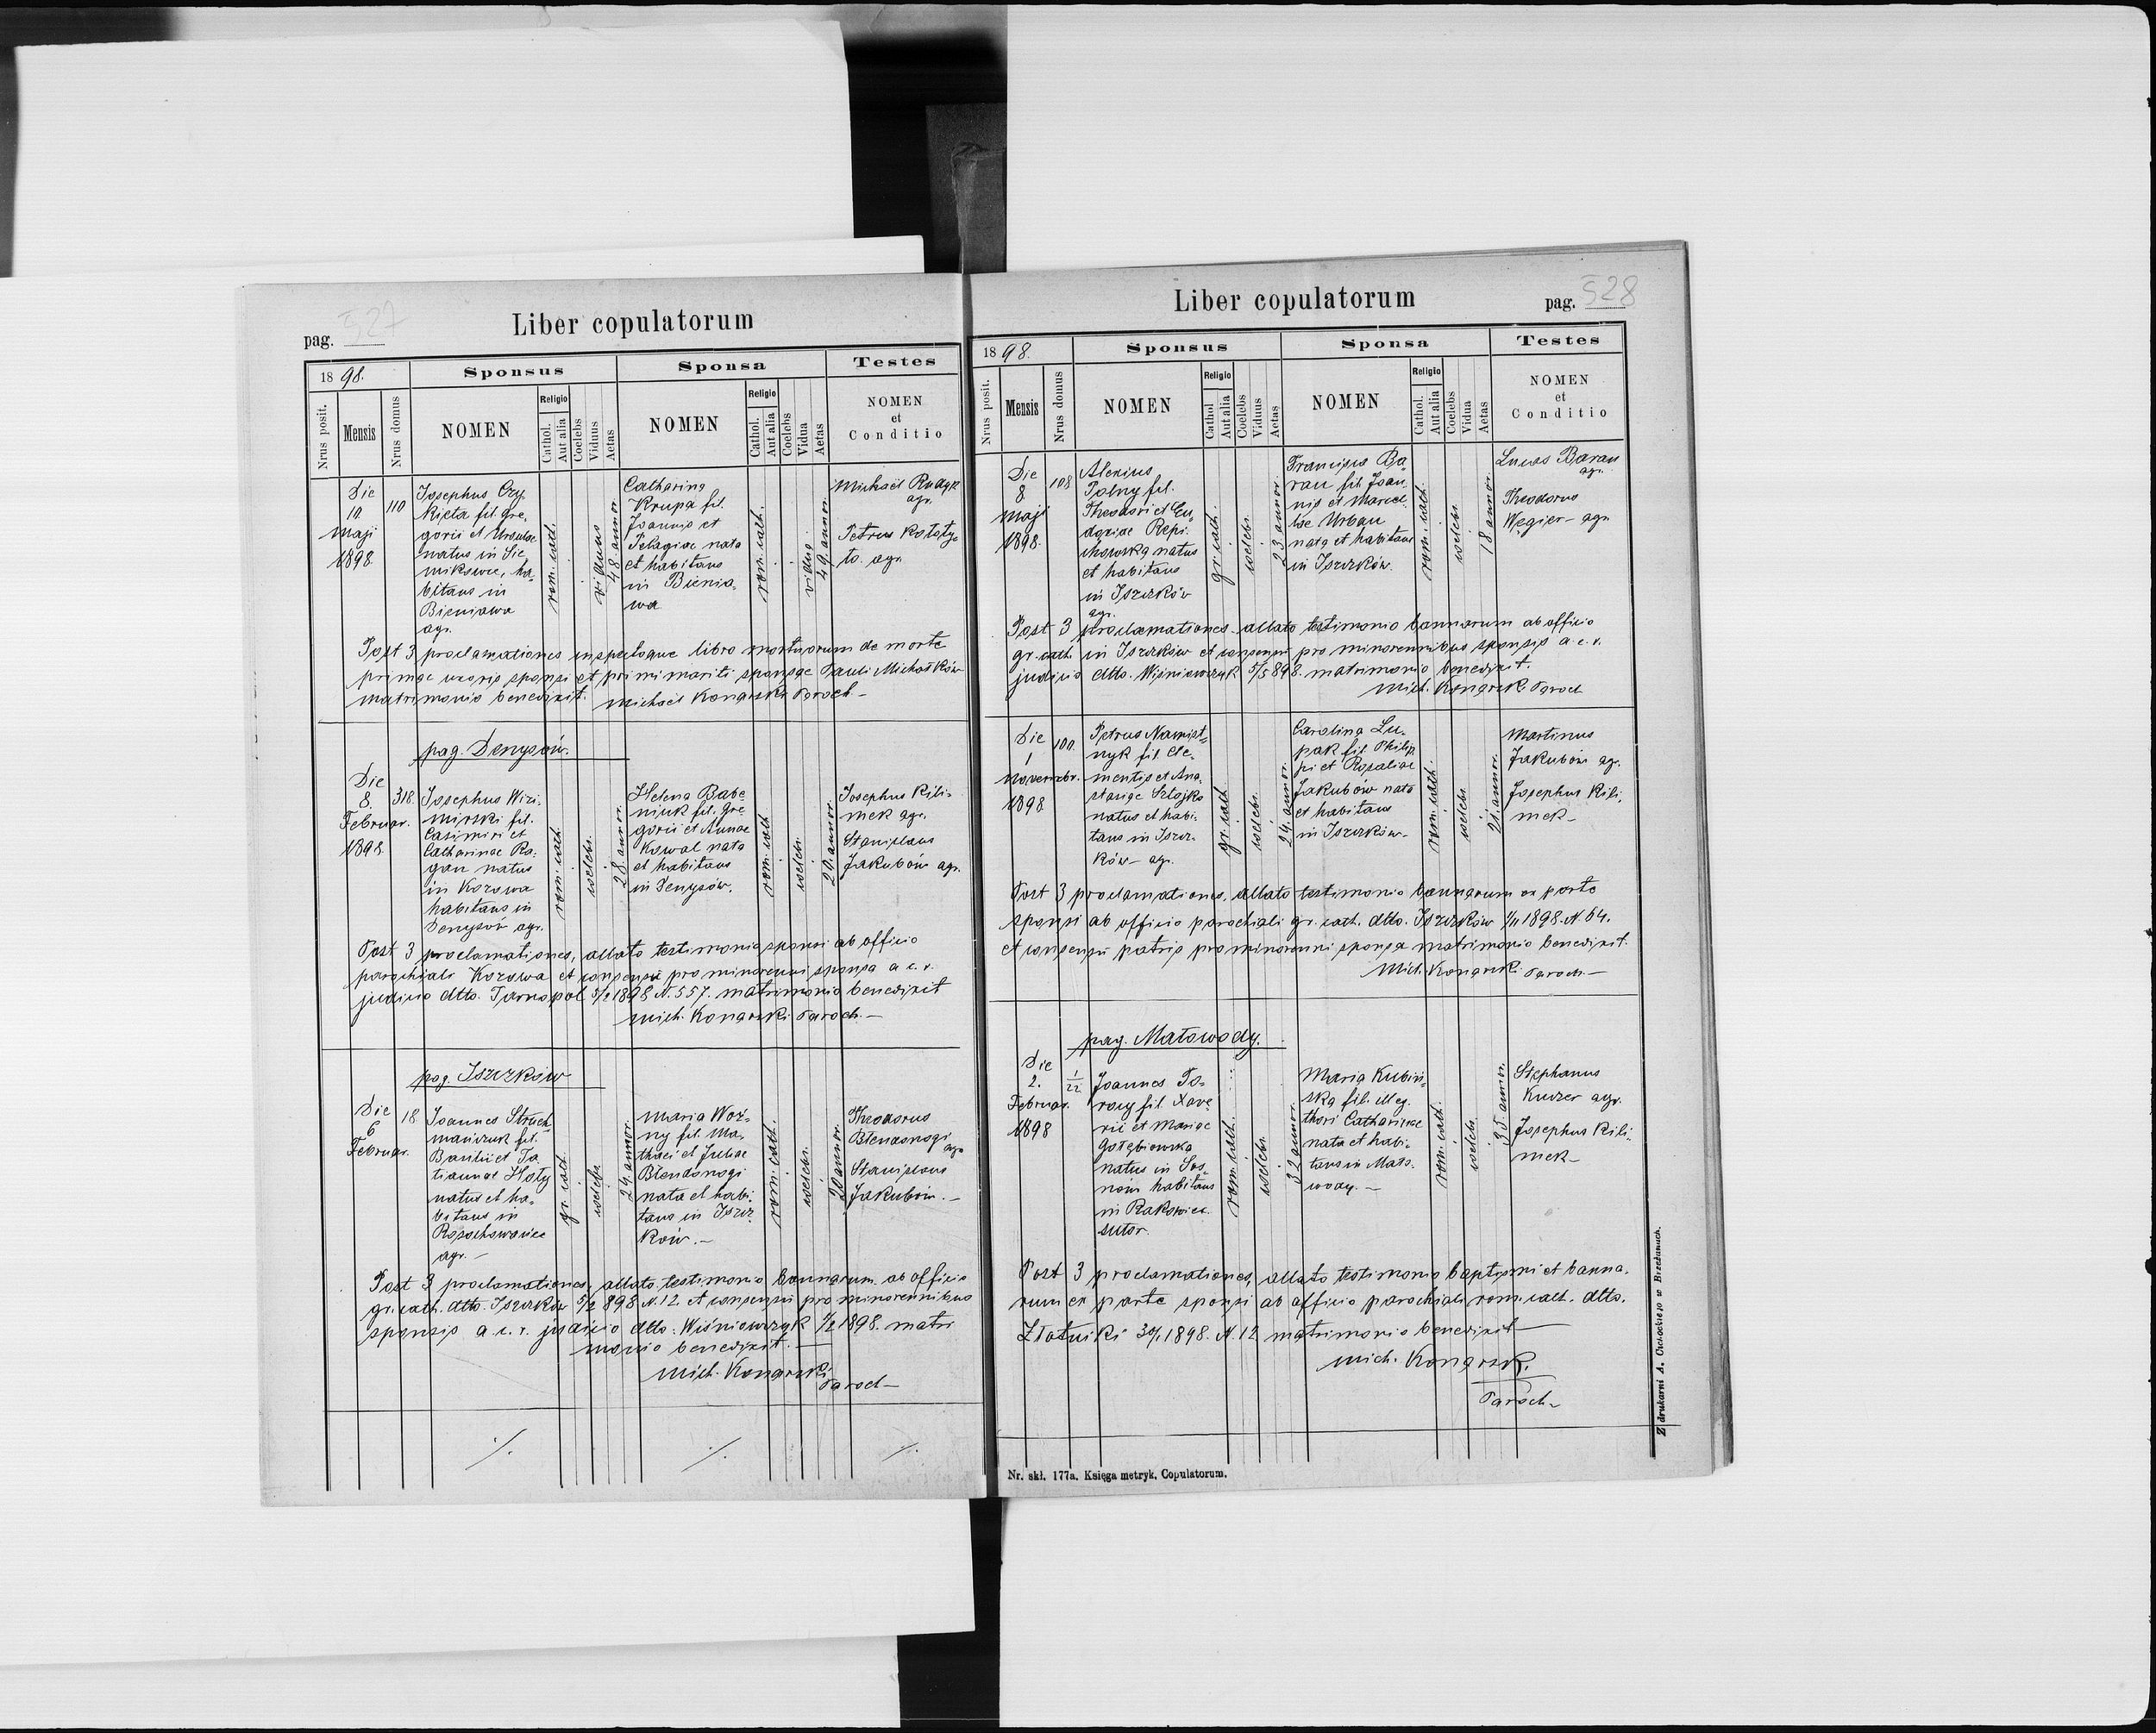 pag. 527
Liber copulatorum
1898.
Sponsus
Sponsa
Testes
Nrus posit.
Mensis
Nrus domus
NOMEN
Religio
Cathol.
Aut alia
Coelebs
Viduus
Aetas
NOMEN
Religio
Cathol.
Aut alia
Coelebs
Vidua
Aetas
NOMEN
et
Conditio
Die
10
Maji
1898.
110
Josephus Czy
kieta fil. Gre,
gorii et Ursulae
natus in Sie
mikowce, ha,
bitans in
Bieniawa
agr.
rom. cath.
viduus
48 annor.
Catharina
Krupa fil.
Joannis et
Pelagiae nata
et habitans
in Bienia,
wa
rom. cath.
vidua.
49. annor.
Michael Rudyk
agr.
Petrus
to. agr.
Post 3 proclamationes inspectoque libro mortuorum de morte
primae uxoris sponsi et primi mariti sponsae Pauli Michałków
matrimonio benedixit. Michael Konarski Paroch-
pag. Denysów.
Die
8.
Februar.
1898.
318.
Josephus Wizi-
mirski fil.
Casimiri et
Catharinae Ro-
gan natus
in Kozowa
habitans in
Denysów agr.
rom. cath.
coelebs.
28. annor.
Helena Babe
niuk fil. Gre
gorii et Annae
Kowal nata
et habitans
in Denysów.
rom. cath
coelebs.
20. annor.
Josephus Kili-
mek agr.
Stanislaus
Jakubów agr.
Post 3 proclamationes, allato testimonio sponsi ab officio
parochiali Kozowa et consensu pro minorenni sponsa a c. r.
judicio dtto. Tarnopol 5/2 1898 N. 557. matrimonio benedixit
Mich. Konarski Paroch.-
pag. Iszczków
Die
6
Februar.
18.
Joannes Struch
mańczuk fil.
Basilii et Ta
tiannae Hoły
natus et ha-
bitans in
Rosochowaciec
agr.-
gr. cath.
coelebs
24. annor.
Maria Woź-
ny fil. Ma-
thaei et Juliae
Błendonogi
nata et habi-
tans in Iszcz
ków.-
rom. cath.
coelebs.
20 annor.
Theodorus
Błendonogi
agr.
Stanislaus
Jakubów.-
Post 3 proclamationes, allato testimonio bannorum ab officio
gr. cath. dtto. Iszczków 5/2 898 N. 12. et consensu pro minorennibus
sponsis a. c. r. judicio dtto. Wiśniowczyk 1/2 1898. matri
monio benedixit.-
Mich. Konarski
Paroch-
Liber copulatorum
pag. 528
1898.
Sponsus
Sponsa
Testes
Nrus posit.
Mensis
Nrus domus
NOMEN
Religio
Cathol
Aut alia
Coelebs
Viduus
Aetas
NOMEN
Religio
Cathol.
Aut alia
Coelebs
Vidua
Aetas
NOMEN
et
Conditio
Die
8
Maji
1898.
108
Alexius
Polny fil.
Theodori et Eu,
doxiae Repi-
chowska natus
et habitans
in Iszczków
agr.
gr. cath.
coelebs.
23 annor.
Francisca Ba
ran fil. Joan,
nis et Marcel-
lae Urban
nata et habitans
in Iszczków.
rom. cath.
coelebs.
18 annor.
Lucas Baran
agr.
Theodorus
Węgier- agr.
Post 3 proclamationes allato testimonio bannorum ab officio
gr. cath. in Iszczków et consensu pro minorennibus sponsis a. c. r.
judicio dtto. Wiśniowczyk 5/5 898. matrimonio benedixit.
Mich. Konarski Paroch
Die
1
Novembr.
1898.
100.
Petrus Namist,
nyk fil. Cle,
mentis et Ana,
stasiae Sztojko
natus et habi-
tans in Iszcz-
ków- agr.
gr. cath.
coelebs.
24. annor.
Carolina Lu,
pak fil. Philip
pi et Rosaliae
Jakubów nata
et habitans
in Iszczków-
rom. cath.
coelebs.
21. annor.
Martinus
Jakubów agr.
Josephus Kili,
mek-
Post 3 proclamationes, allato testimonio bannorum ex parte
sponsi ab officio parochiali gr. cath. dtto. Iszczków 1/11 1898. N. 64.
et consensu patris pro minorenni sponsa matrimonio benedixit.
Mich. Konarski Paroch.-
pag. Małowody.
Die
2.
Februar.
1898
1/22
Joannes To-
rony fil. Xave
rii et Mariae
Gołębiowska
natus in Sos-
nów habitans
in Rakowiec.
sutor.
rom. cath.
coelebs.
32 annor.
Maria Kubiń-
ska fil. Mag.
thori Catharinae
nata et habi-
tans in Mało.
wody.-
rom. cath.
coelebs.
35 annor.
Stephanus
Kuczer agr.
Josephus Kili-
mek-
Post 3 proclamationes, allato testimonio baptismi et banno-
rum ex parte sponsi ab officio parochiali rom. cath. dtto.
Złotniki 30/1 1898. N. 12 matrimonio benedixit-
Mich. Konarski
Paroch-
Nr. skł. 177a. Księga metryk. Copulatorum.
Z drukarni A. Cucockiego w Brzeżanach.